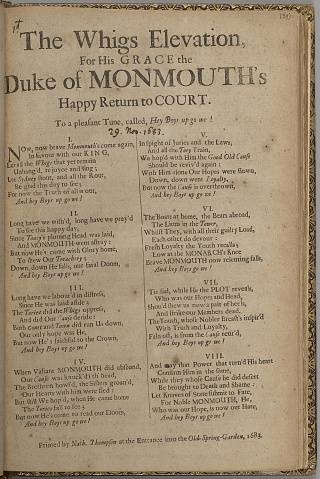 The Whigs Elevation,
For His GRACE the
Duke of MONMOUTH's
Happy Return to COURT.
To a pleasant Tune, called, Hey Boys up go we!
29. Nov. 1683.
I.
NOw, now brave Monmouth's come again,
In favour with our KING,
Let all the Whigs that yet remain
Unhang'd, rejoyce and sing;
Let Sydney Bont, and all the Rout,
Be glad this day to see;
For now the Truth of all's out,
And hey Boys up go we!
II.
Long have we wish'd, long have we pray'd
To see this happy day,
Since Tony's plotting Head was laid,
And MONMOUTH went astray:
But now He's come with Glory home,
To shew Our Treachery;
Down, down He falls, our fatal Doom,
And hey Boys up go we!
III.
Long have we labour'd in distress,
Since He was laid aside;
The Tories did the Whigs oppress,
And did Our Cause deride:
Both Court and Town did run Us down,
Our only hope was He,
But now He's faithful to the Crown,
And hey Boys up go we!
IV.
When Valiant MONMOUTH did abscond,
Our Cause was struck dead,
The Brethren howl'd, the Sisters groan'd,
Our Hearts with him were fled:
But still We hop'd, when He came home
The Tories fall to see;
But now He's come to read our Doom,
And hey Boys up go we!
V.
In spight of Juries and the Laws,
And all the Tory Train,
We hop'd with Him the Good Old Cause
Should be reviv'd again:
With Him alone Our Hopes were flown,
Down, down went Loyalty,
But now the Cause is overthrown,
And hey Boys up go we!
VI.
The Boars at home, the Bears abroad,
The Lions in the Tower,
Whilst They, with all their guilty Load,
Each other do devour:
Fresh Loyalty the Youth recalls;
Low at the MONARCH's Knee
Brave MONMOUTH now relenting falls,
And hey Boys up go we!
VII.
'Tis said, while He the PLOT reveals,
Who was our Hopes and Head,
Should shew us a pair of heels,
And strike our Members dead.
The Youth, whose Nobler Breast's inspir'd
With Truth and Loyalty,
Falls off, is from the Cause retir'd,
And hey Boys up go we!
VIII.
And may that Power that turn'd His heart
Confirm Him in the same,
While they whose Cause he did desert
Be brought to Death and Shame:
Let Knaves of State submit to Fate,
For Noble MONMOUTH, He,
Who was our Hope, is now our Hate,
And hey Boys up go we!
Printed by Nath. Thompson at the Entrance into the Old-Spring-Garden, 1683.